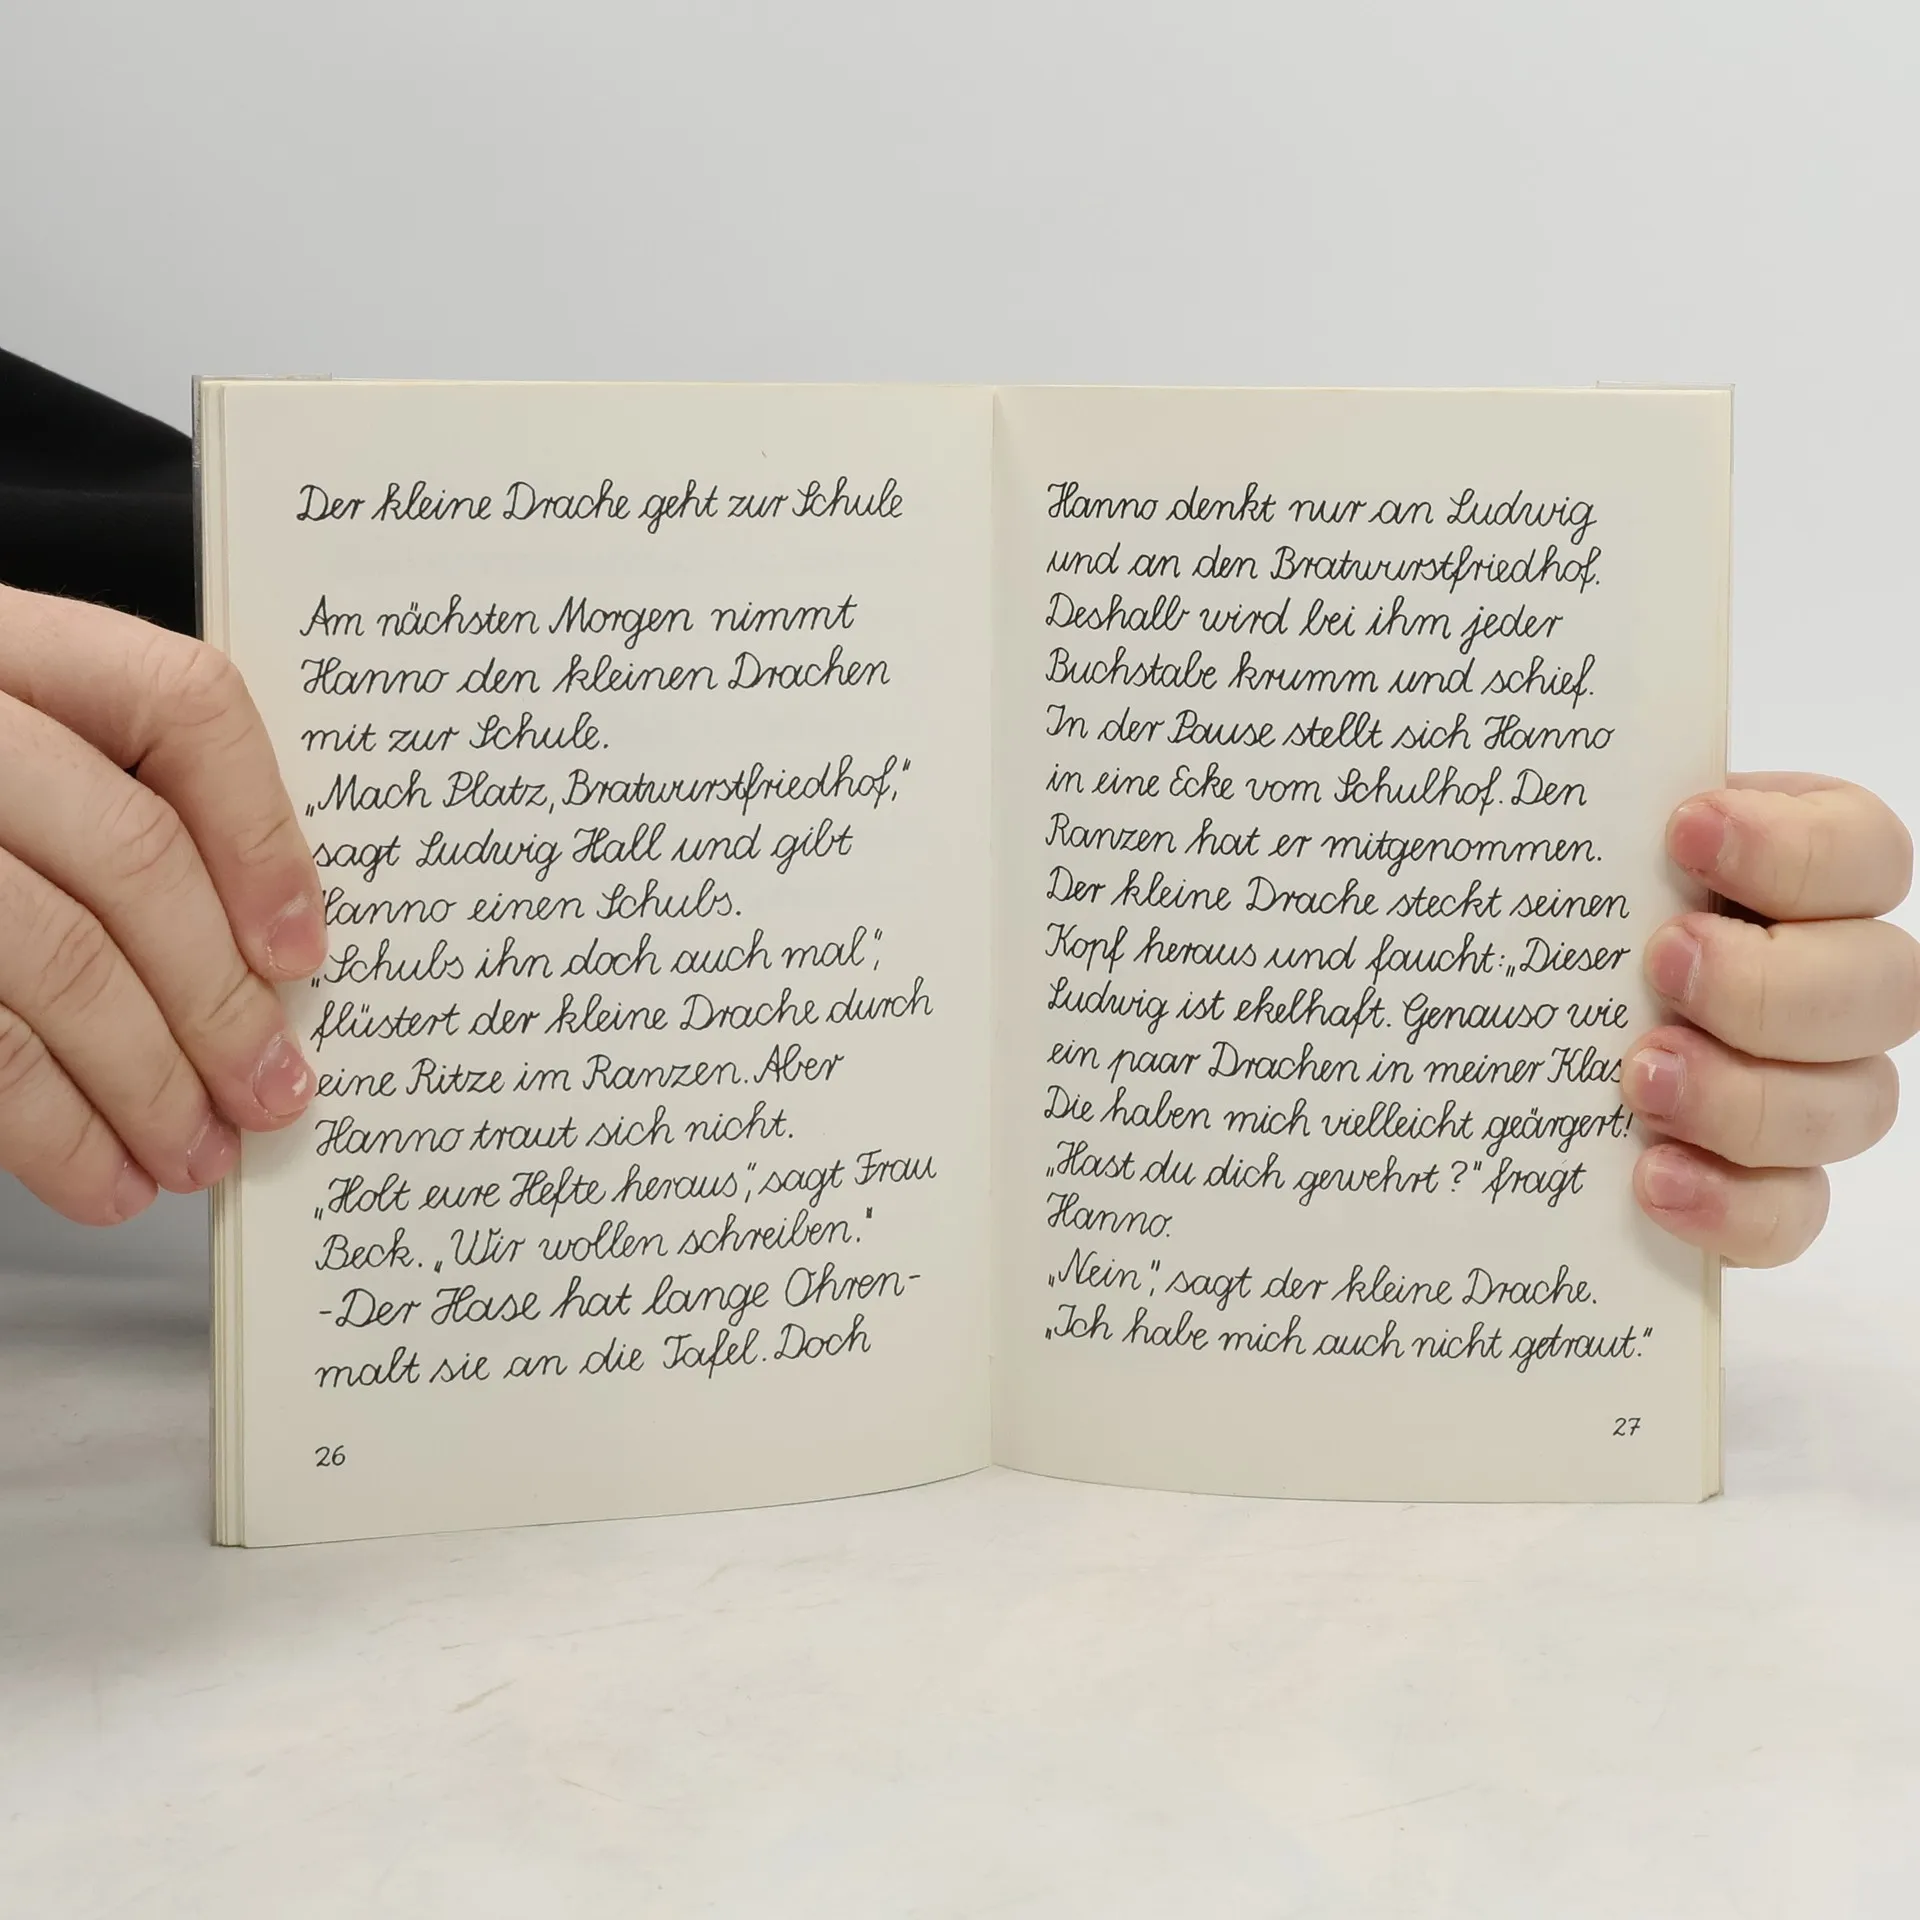 Der kleine Drache geht zur Schule
Am nächsten Morgen nimmt
Hanno den kleinen Drachen
mit zur Schule.
„Mach Platz, Bratwurstfriedhof,“
sagt Ludwig Hall und gibt
Hanno einen Schubs.
„Schubs ihn doch auch mal“,
flüstert der kleine Drache durch
eine Ritze im Ranzen. Aber
Hanno traut sich nicht.
„Holt eure Hefte heraus“, sagt Frau
Beck. „Wir wollen schreiben.“
-Der Hase hat lange Ohren-
malt sie an die Tafel. Doch
26
Hanno denkt nur an Ludwig
und an den Bratwurstfriedhof.
Deshalb wird bei ihm jeder
Buchstabe krumm und schief.
In der Pause stellt sich Hanno
in eine Ecke vom Schulhof. Den
Ranzen hat er mitgenommen.
Der kleine Drache steckt seinen
Kopf heraus und faucht: „Dieser
Ludwig ist ekelhaft. Genauso wie
ein paar Drachen in meiner Klas
Die haben mich vielleicht geärgert!
„Hast du dich gewehrt?“ fragt
Hanno.
„Nein“, sagt der kleine Drache.
„Ich habe mich auch nicht getraut.“
27